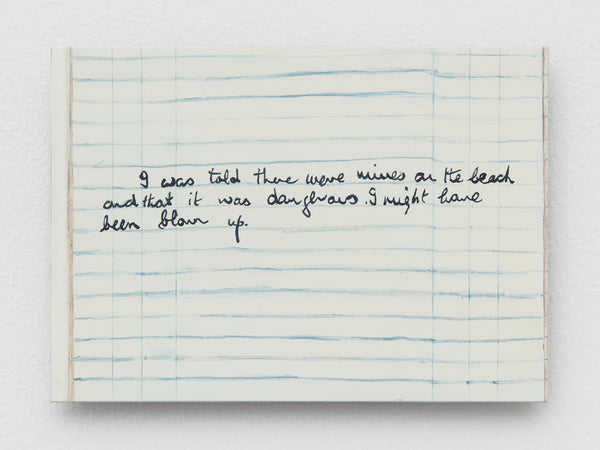 I was told there were mines on the beach
and that it was dangerous. I might have
been blown up.